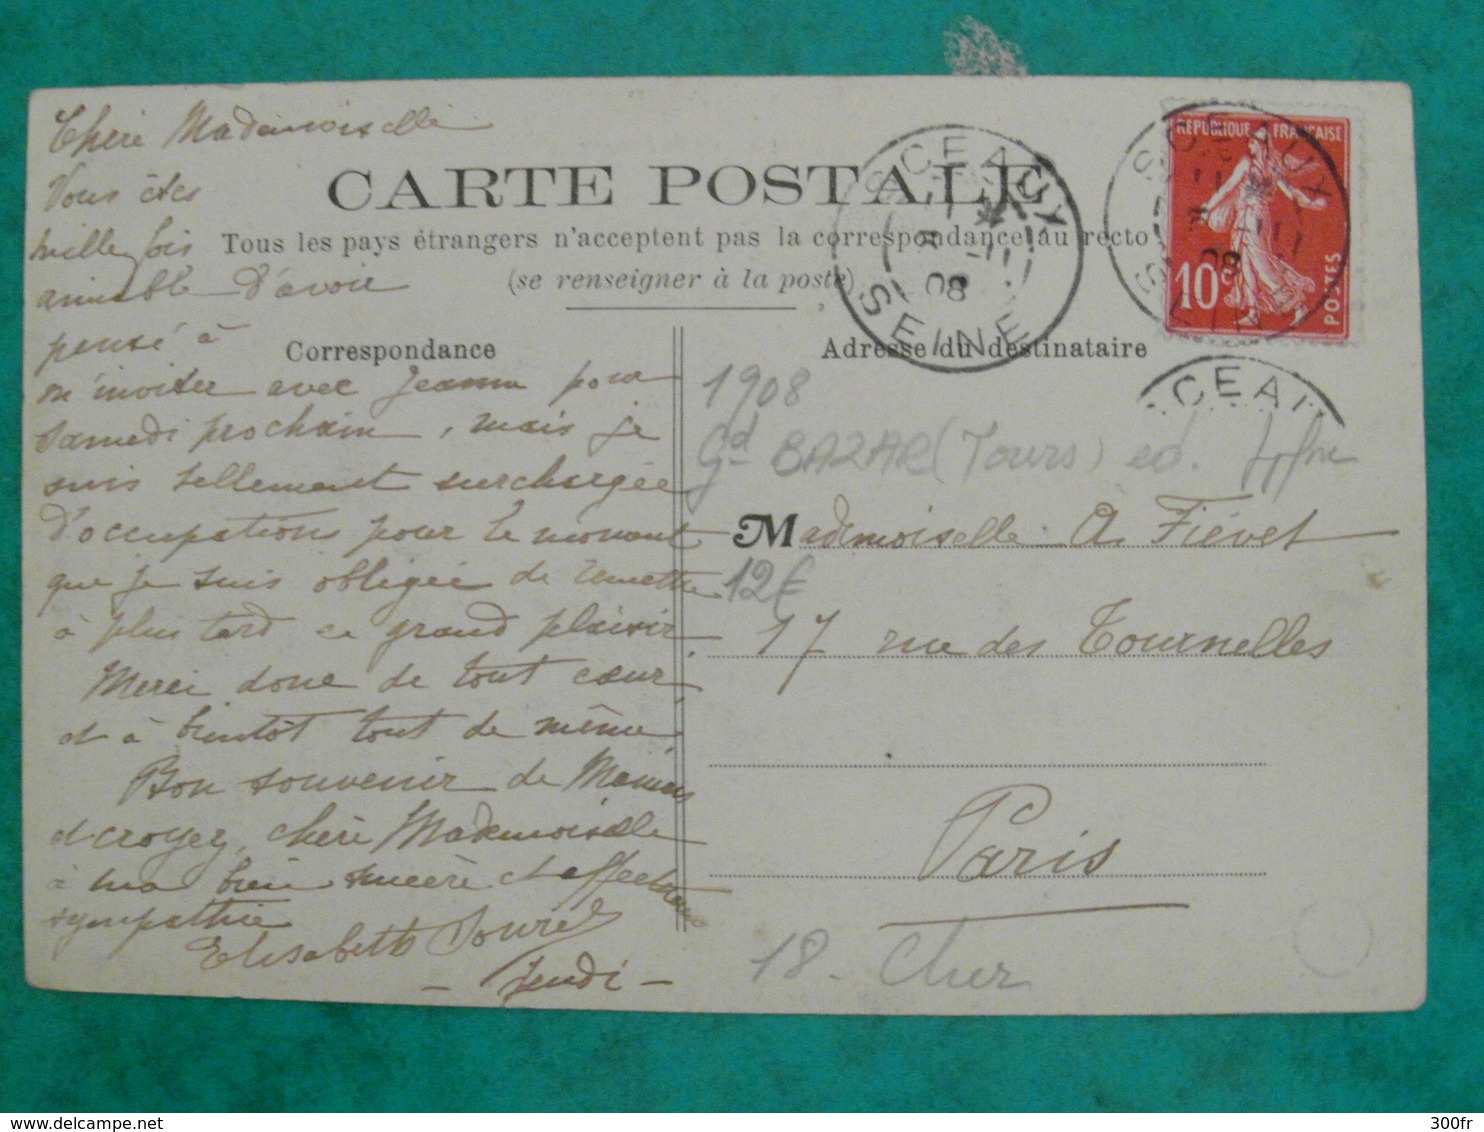 Chère Mademoiselle
Vous êtes
mille fois
aimable d'avoir
pensé à
m'inviter avec Jeanne pour
samedi prochain, mais je
suis tellement surchargée
d'occupations pour le moment
que je suis obligée de remettre
à plus tard ce grand plaisir.
Merci donc de tout cœur,
et à bientôt tout de même.
Bon souvenir de Maman
et croyez, chère Mademoiselle
à ma bien sincère et affectueuse
sympathie
Elisabeth
- Jeudi -
CARTE POSTALE
Tous les pays étrangers n'acceptent pas la correspondance au recto
(se renseigner à la poste)
Correspondance
Adresse du destinataire
SCEAUX
08
SEINE
SCEAUX
08
SEINE
REPUBLIQUE FRANÇAISE
10c
POSTES
SCEAU
1908
Gd BAZAR (Tours) ed.
Mademoiselle A. Fiévet
12€
17 rue des Tournelles
Paris
18 - Cher
delcampe.net
300fr